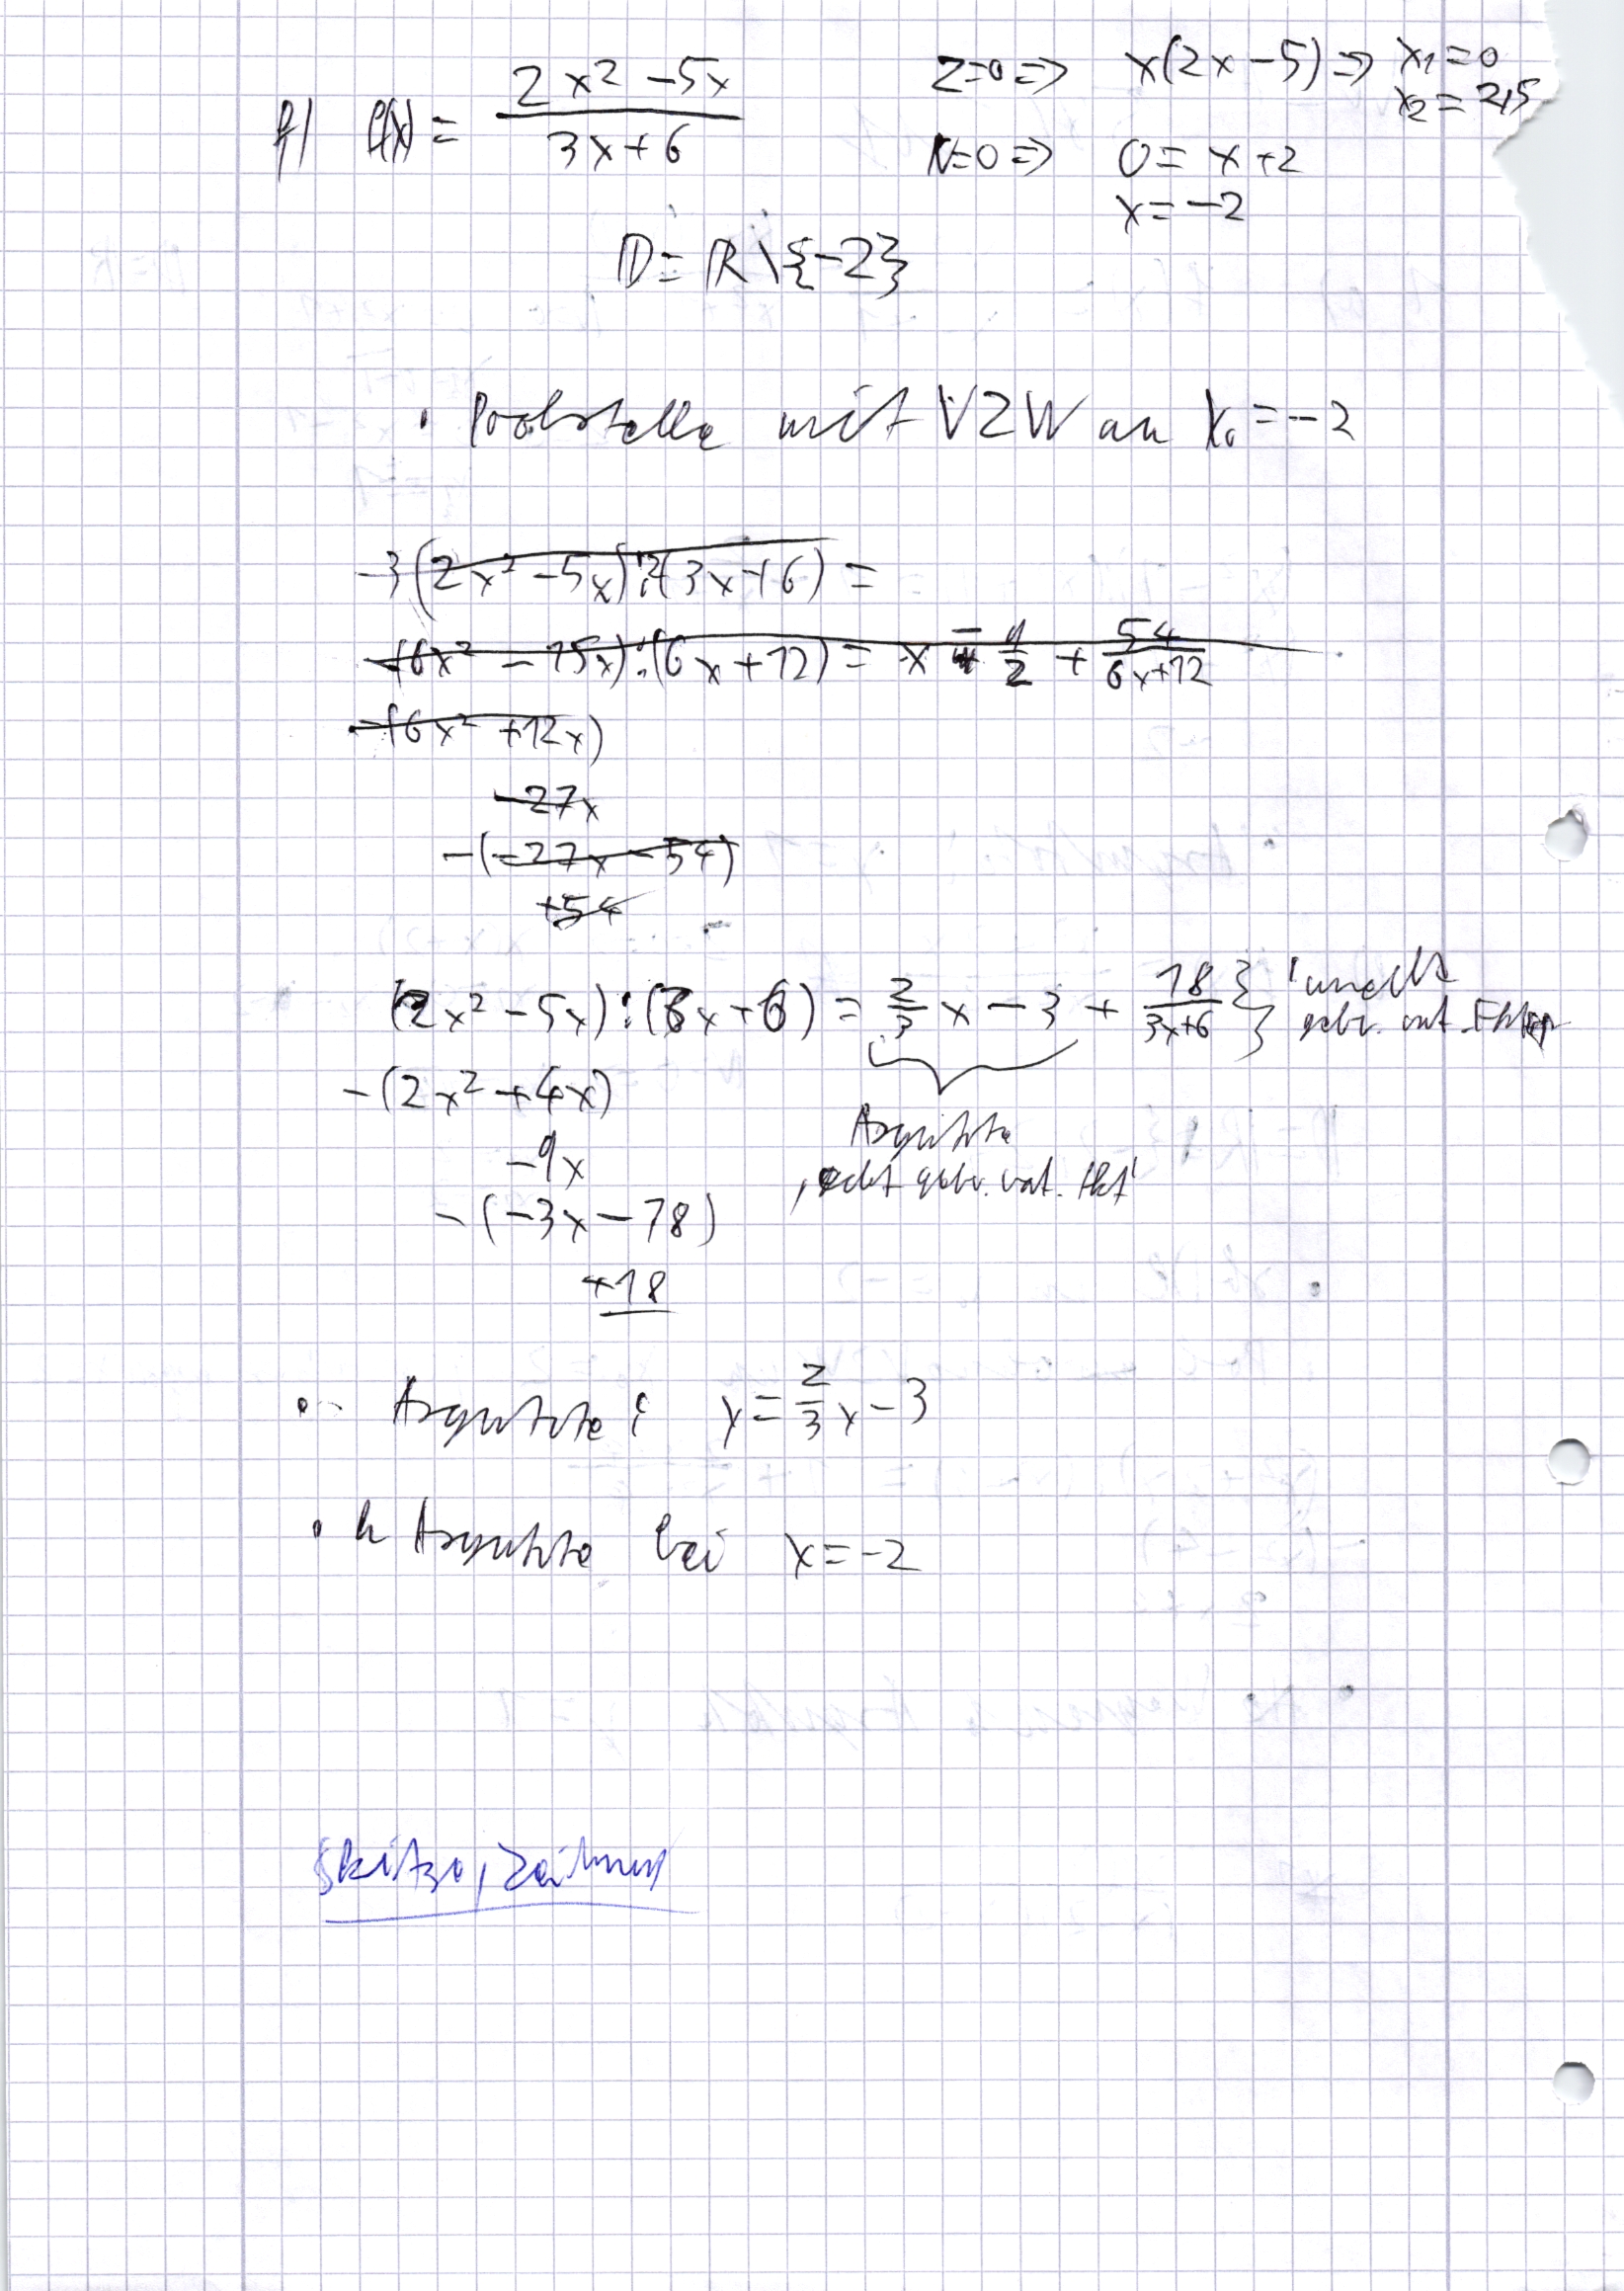 f) f(x) = (2x² - 5x)/(3x + 6)
Z=0 => x(2x - 5) => x₁ = 0
x₂ = 2,5
N=0 => 0 = x + 2
x = -2
D = ℝ \ {-2}
• Poolstelle mit VZW an x₀ = -2
-3(2x² - 5x) : 2(3x + 6) =
-(6x² - 15x) : (6x + 12) = x - 9/2 + 54/(6x+12)
-(6x² + 12x)
-27x
-(-27x - 54)
+54
(2x² - 5x) : (3x + 6) = 2/3 x - 3 + 18/(3x+6) } 'unecht
gebr. rat. Fkt
-(2x² + 4x)
Asymtote
-9x
'echt gebr. rat. Fkt'
-(-9x - 18)
+18
• Asymtote: y = 2/3 x - 3
• Asymtote bei x = -2
Skitze, Zeichnung